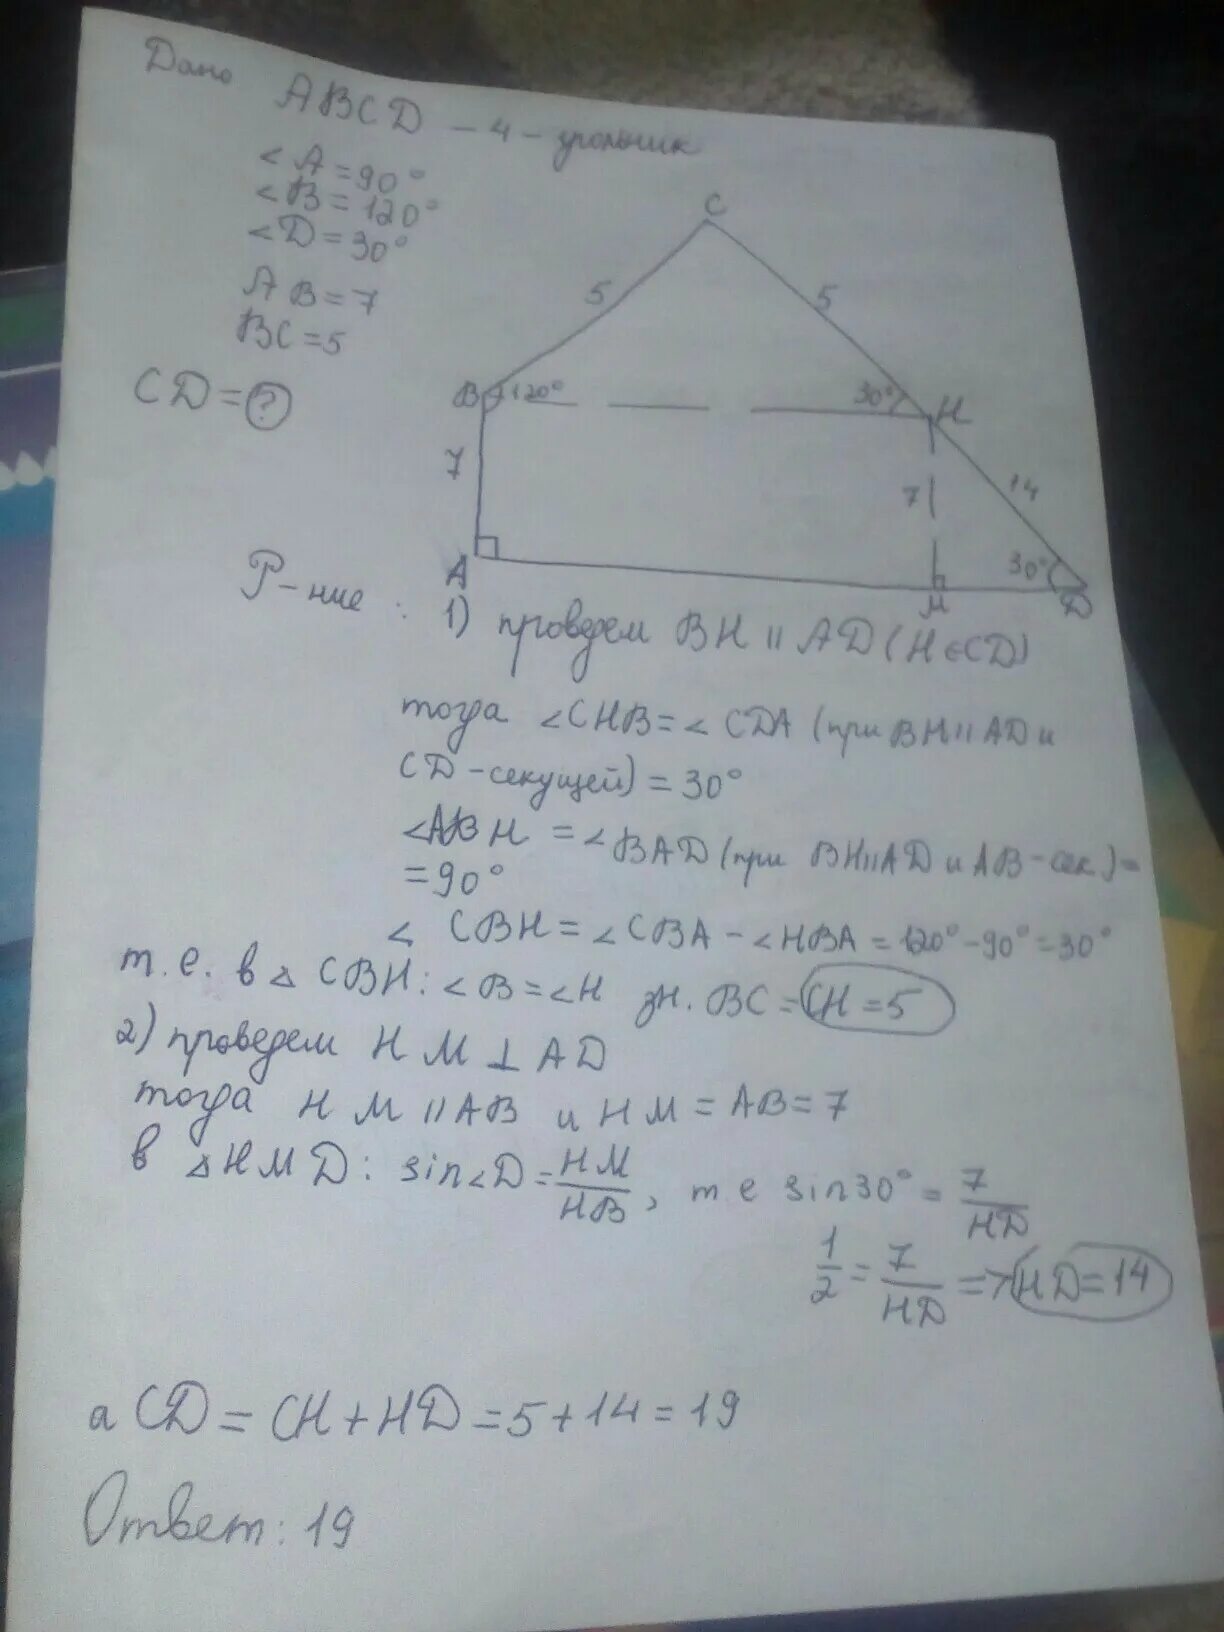 Дано ABCD – 4 – угольник
∠A = 90°
∠B = 120°
∠D = 30°
AB = 7
BC = 5
CD = ?
C
5
5
B
120°
30°
H
7
7
14
A
30°
M
D
Р-ние : 1) проведем BH || AD (H ∈ CD)
тогда ∠CHB = ∠CDA (при BH || AD и
CD - секущей) = 30°
∠ABH = ∠BAD (при BH || AD и AB - сек.) =
= 90°
∠CBH = ∠CBA - ∠HBA = 120° - 90° = 30°
т.е. в △ CBH: ∠B = ∠H зн. BC = CH = 5
2) проведем HM ⊥ AD
тогда HM || AB и HM = AB = 7
в △HMD: sin∠D = HM/HB, т.е sin30° = 7/HD
1/2 = 7/HD => HD = 14
а CD = CH + HD = 5 + 14 = 19
Ответ: 19